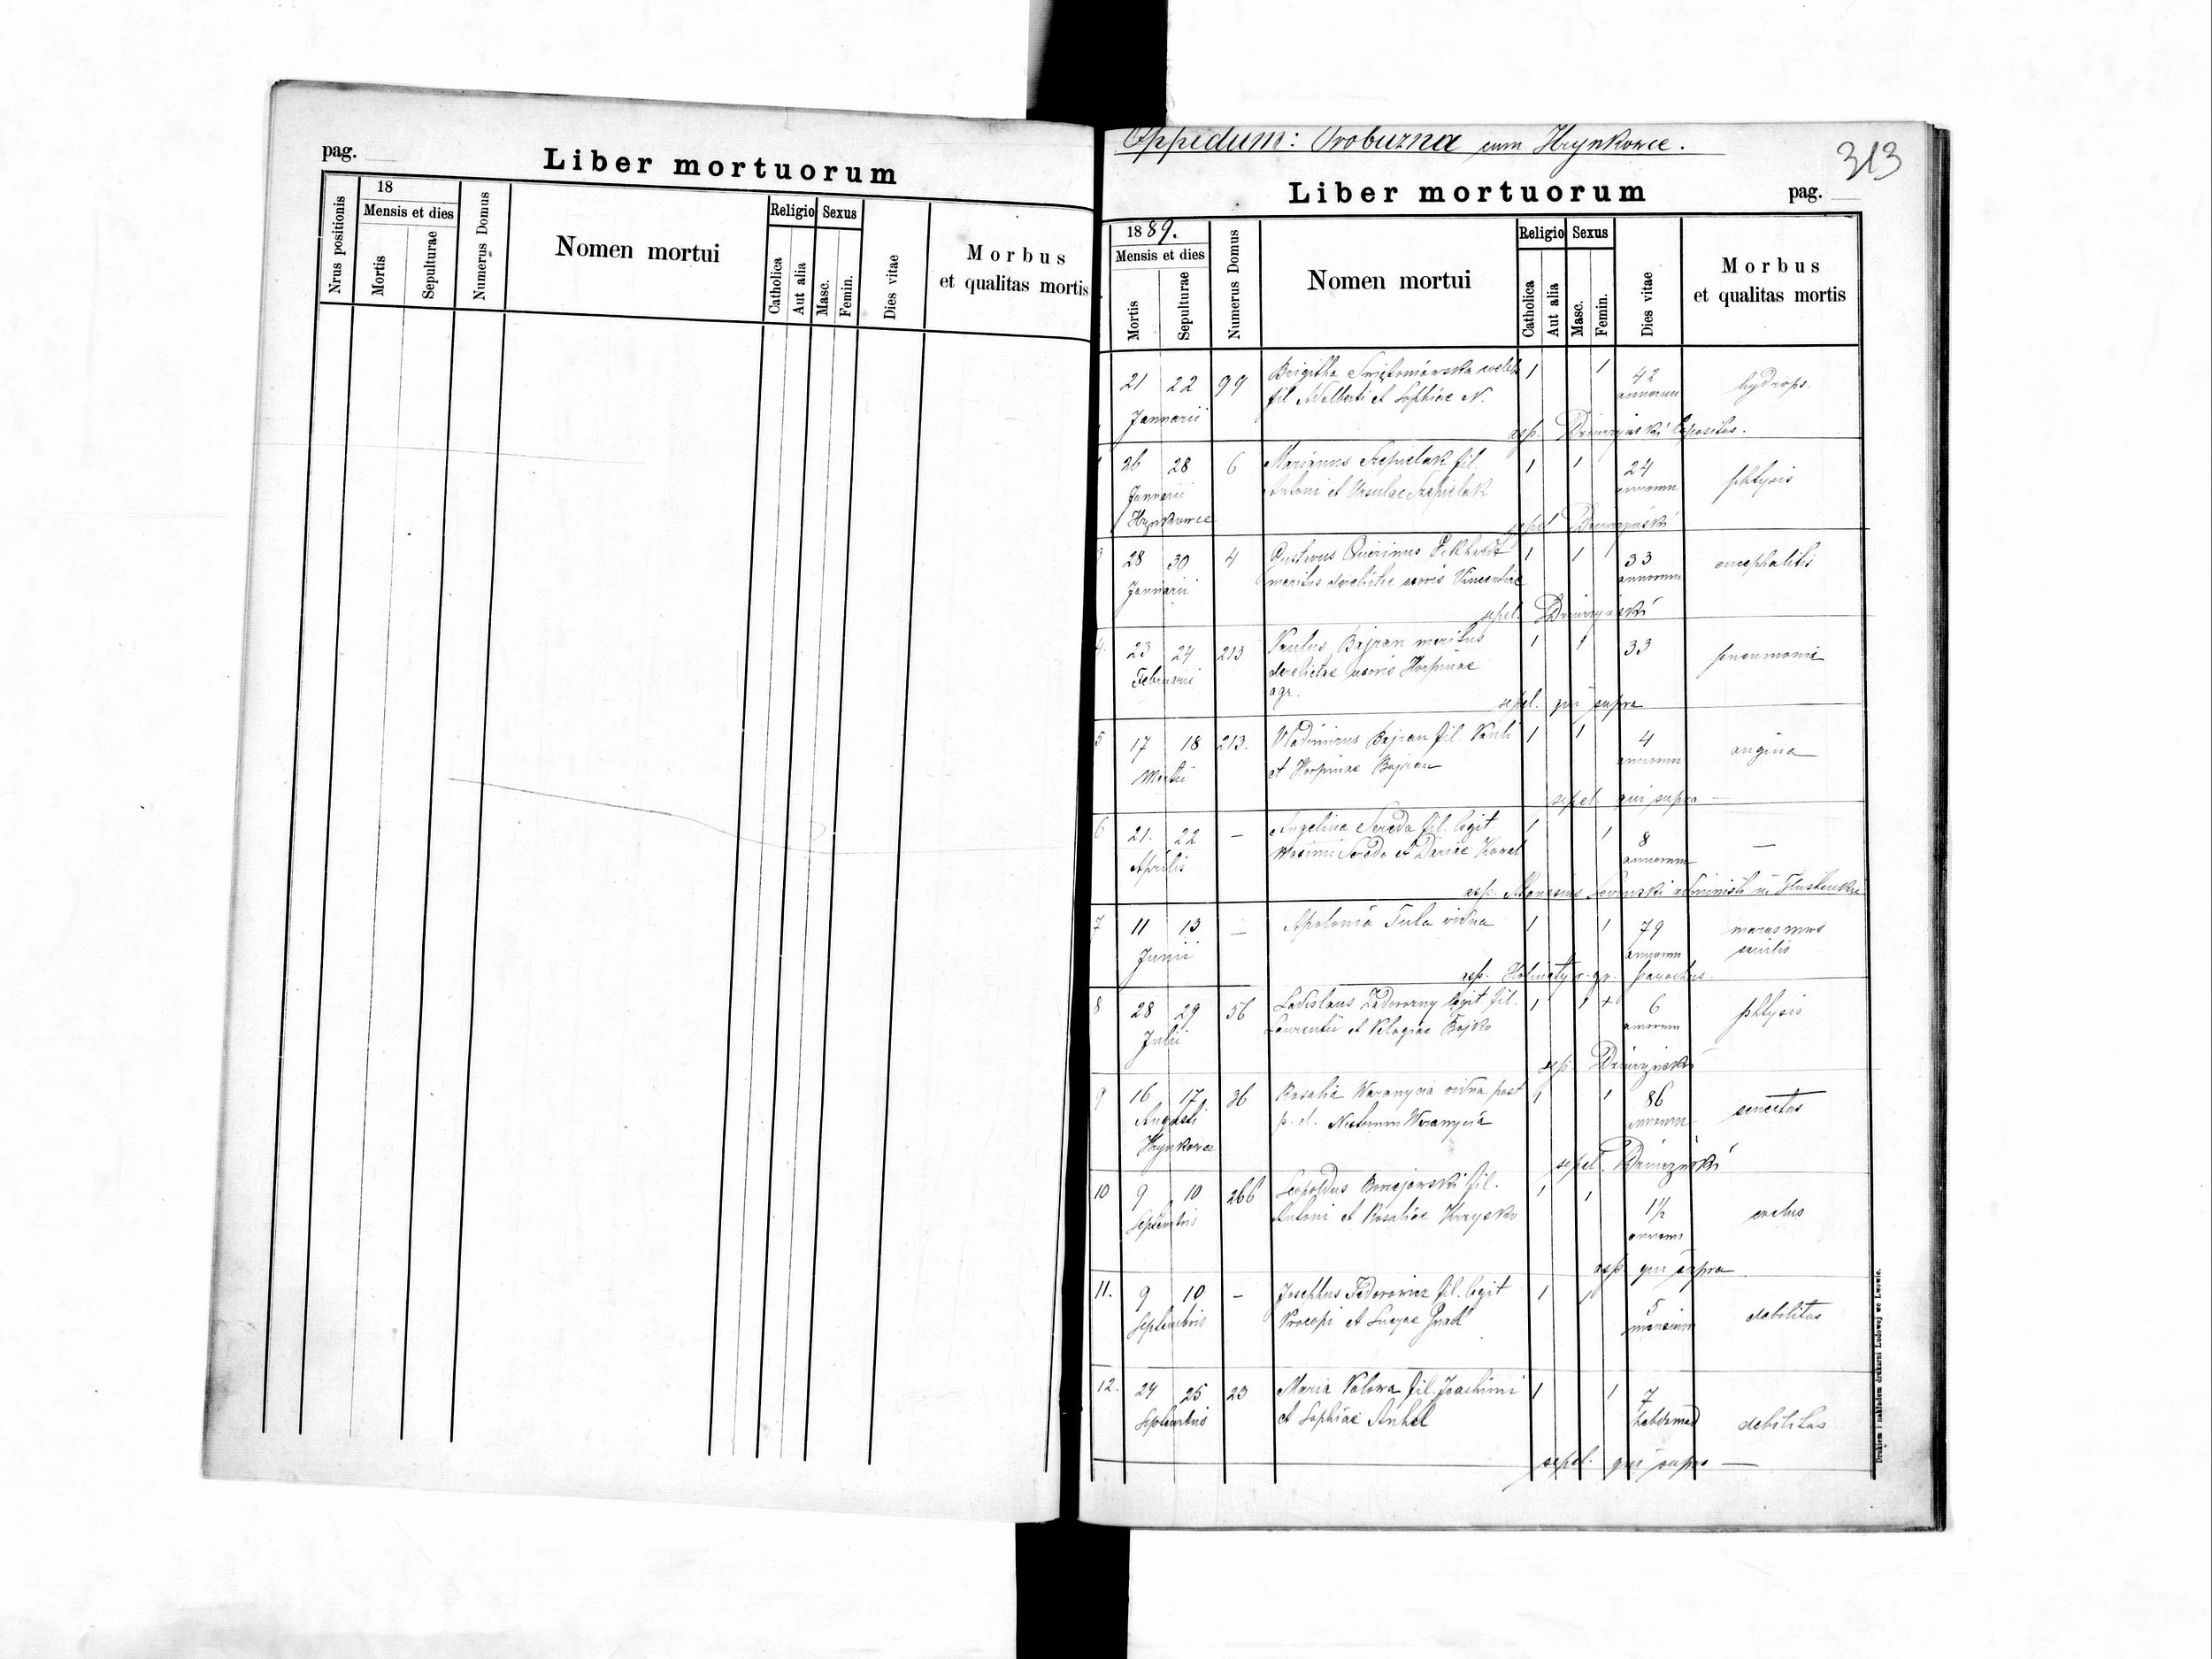 pag.
Liber mortuorum
Nrus positionis
18
Mensis et dies
Mortis
Sepulturae
Numerus Domus
Nomen mortui
Religio
Catholica
Aut alia
Sexus
Masc.
Femin.
Dies vitae
Morbus
et qualitas mortis
Oppidum: Probuzna cum Hrynkowce.
313
Liber mortuorum
pag.
1889.
Mensis et dies
Mortis
Sepulturae
Numerus Domus
Nomen mortui
Religio
Catholica
Aut alia
Sexus
Masc.
Femin.
Dies vitae
Morbus
et qualitas mortis
21 22 99 Brigitha 1 1 42 hydrops.
fil. Adalberti et Sophiae N. annorum
Januarii
26 28 6 Marianus Szepielak fil. 1 1 24 phtysis
Januarii Antoni et Ursulae Szepielak annorum
Hrynkowce
3 28 30 4 Gustavus Quirinus 1 1 33 encephalitis
Januarii maritus derelictae uxoris Vincentiae annorum
sepel.
4. 23 24 213 Paulus Bajran maritus 1 1 33 pneumonia
Februarii derelictae uxoris Horpinae
agr.
sepel. qui supra
5 17 18 213. Vladimirus Bajran fil. Pauli 1 1 4 angina
Martii et Horpinae Bajran annorum
sepel. qui supra —
6 21. 22 — Angelina Sereda fil. legit 1 1 8 —
Aprilis Maximi Sereda et Dariae annorum
7 11 13 — Apolonia Tula vidua 1 1 79 marasmus
Junii annorum senilis
parochus.
8 28 29 56 Ladislaus Zadorozny legit. fil. 1 1 + 6 phtysis
Julii Laurentii et Pelagiae Bojko annorum
9 16 17 36 Rosalia Waranycia vidua post 1 1 86 senectus
Augusti p. d. Waranycia annorum
Hrynkowce
sepel.
10 9 10 266 Leopoldus fil. 1 1 1½
Septembris Antoni et Rosaliae Krzysko
qui supra
11. 9 10 — Josephus Fedorowicz fil. legit 1 1 5 debilitas
Septembris Procopi et Luciae mensium
12. 24 25 23 Maria fil. Joachimi 1 1 7 debilitas
Septembris et Sophiae Anhel hebdomad
sepel. qui supra —
Drukiem i nakładem drukarni Ludowej we Lwowie.